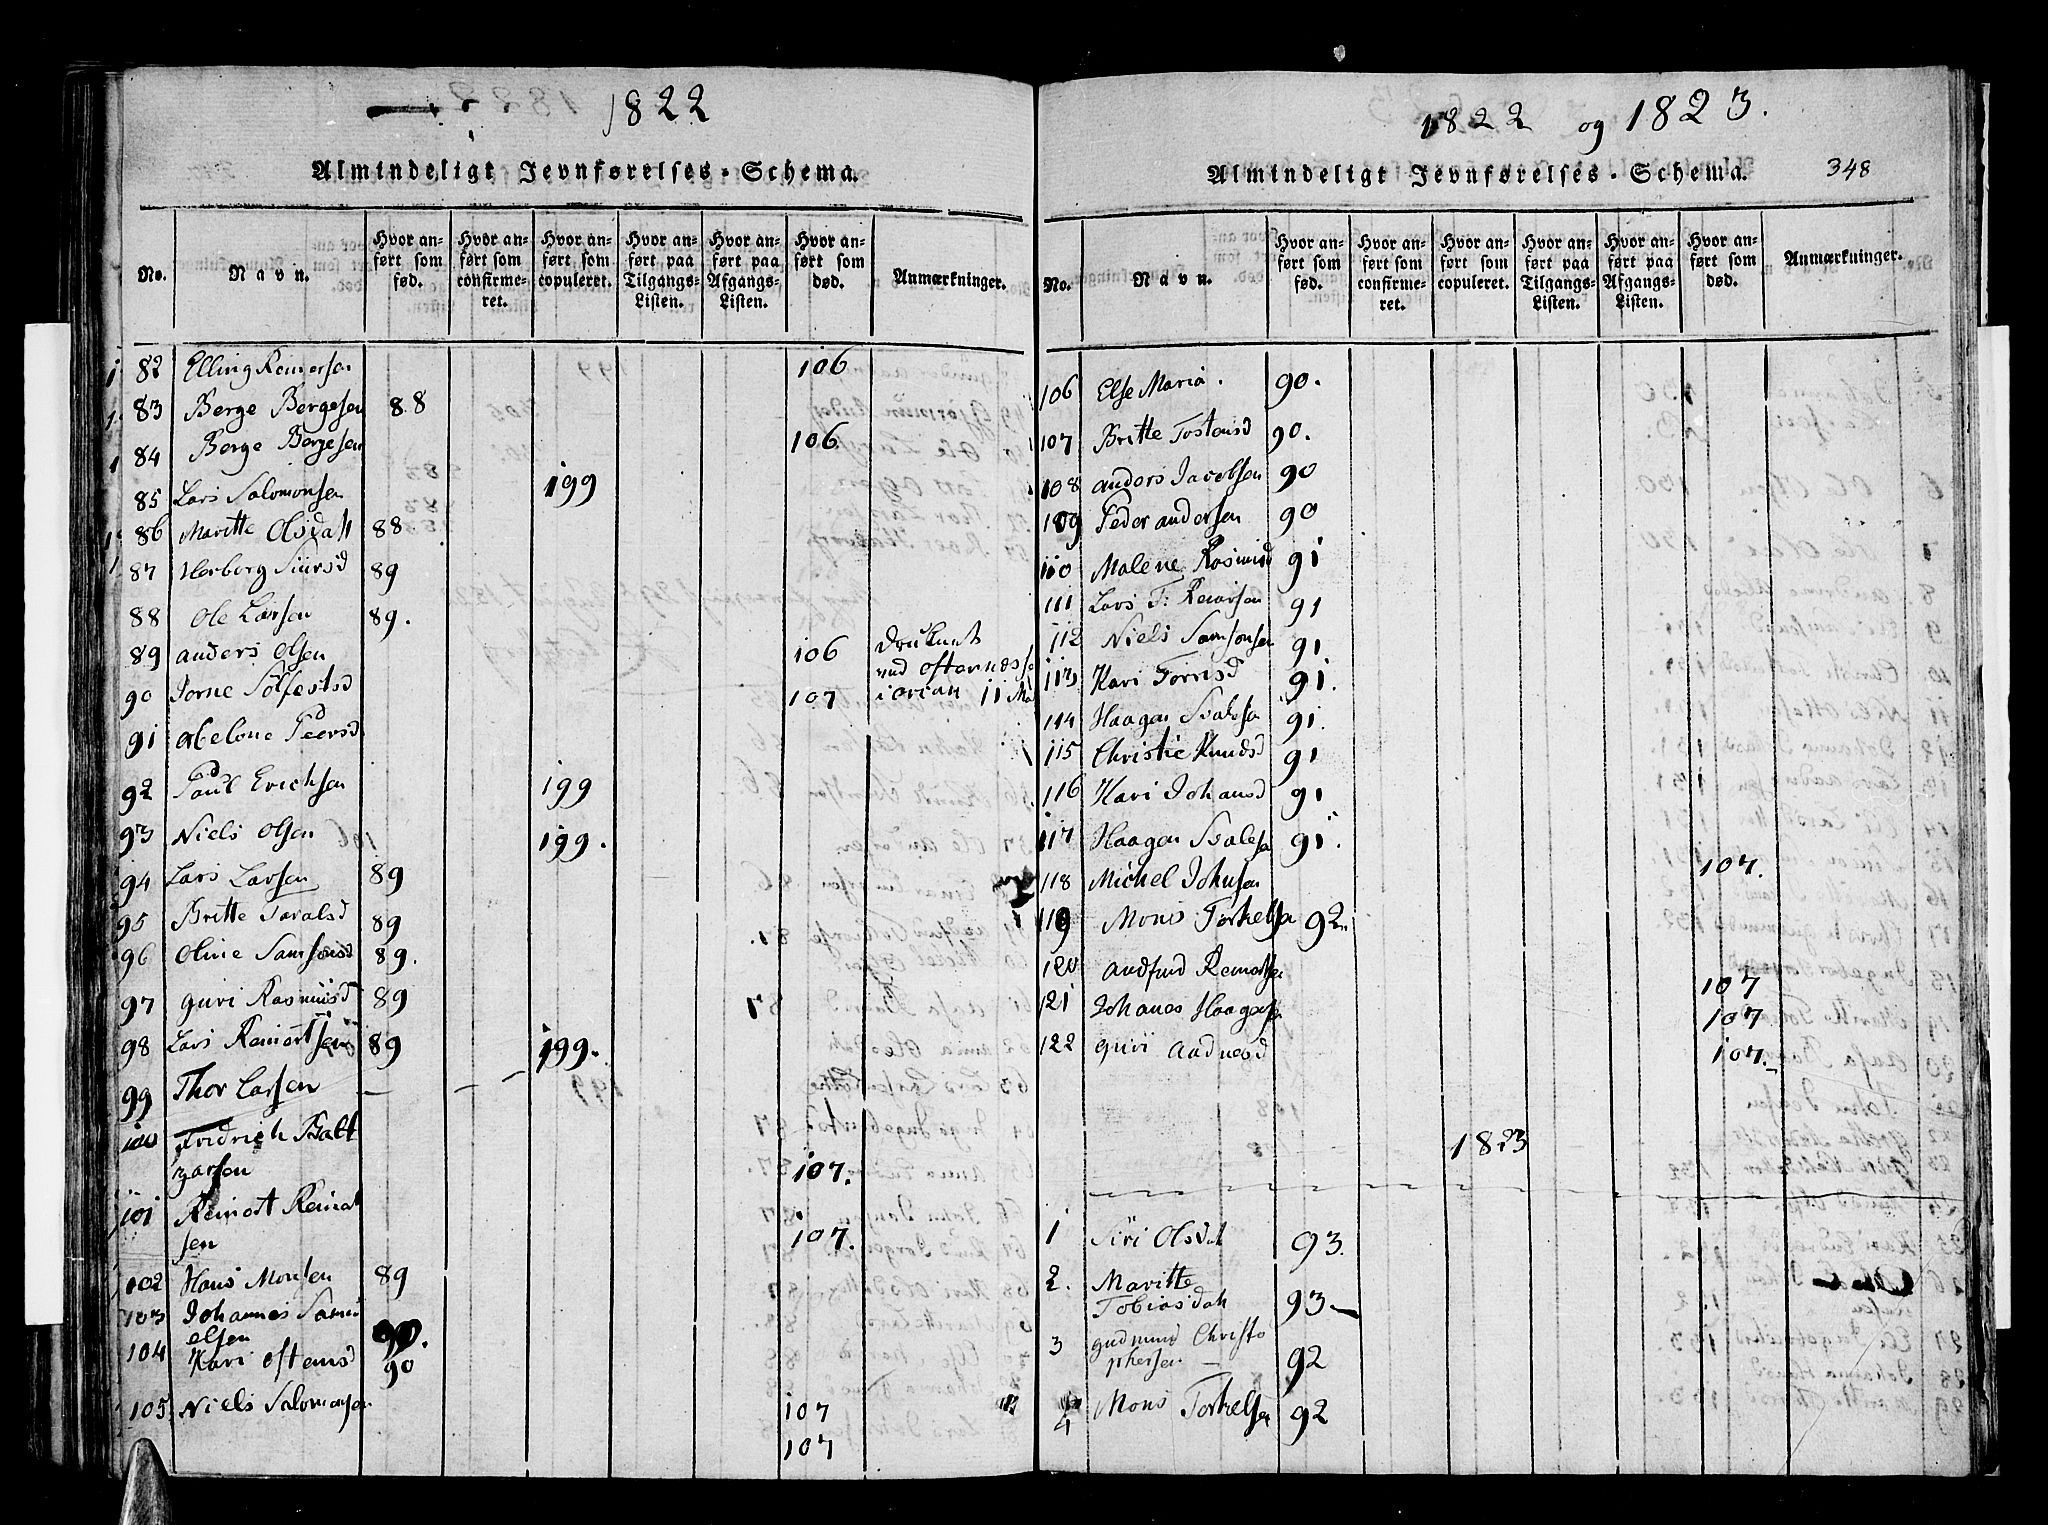 1822
Almindeligt Jevnførelses-Schema.
No.
Navn.
Hvor an-
ført som
fød.
Hvor an-
ført som
confirme-
ret.
Hvor an-
ført som
copuleret.
Hvor an-
ført paa
Tilgangs-
Listen.
Hvor an-
ført paa
Afgangs-
Listen.
Hvor an-
ført som
død.
Anmærkninger.
82 Elling Remersen 106
83 Berge Bergesen 88
84 Berge Bergesen 106
85 Lars Salomonsen 199
86 Maritte Olsdatt 88
87 Herborg Siursd 89
88 Ole Larsen 89.
89 anders Olsen 106
90 Jorne Solfestsd 107
91 Abelone Peersd
92 Paul Erichsen 199
93 Niels Olsen 199.
94 Lars Larsen 89
95 Britte Taralsd 89
96 Oline Samsonsd 89.
97 guri Rasmusd 89
98 Lars Reinertsen 89 199.
99 Thor Larsen — — —
100 Fridrich Balt
zarsen 107.
101 Reinert Reinert
sen 107.
102 Hans Monsen 89
103 Johannes Samu
elsen 90.
104 Kari Ostensd 90
105. Niels Salomonsen 107
107
1822 og 1823.
348
Almindeligt Jevnførelses-Schema.
No.
Navn.
Hvor an-
ført som
fød.
Hvor an-
ført som
confirme-
ret.
Hvor an-
ført som
copuleret.
Hvor an-
ført paa
Tilgangs-
Listen.
Hvor an-
ført paa
Afgangs-
Listen.
Hvor an-
ført som
død.
Anmærkninger.
106 Else Maria. 90.
107 Britte Tostensd 90.
108 anders Jacobsen 90
109 Peder andersen 90
110 Malene Rasmusd 91
111 Lars T: Reinersen 91
112 Niels Samsonsen 91
113 Kari Torrisd 91.
114 Haagen 91.
115 Christie Knudsd 91
116 Kari Johansd 91
117 Haagen 91.
118 Michel Johnsen 107.
119 Mons Torkelsen 92.
120 Reinertsen 107
121 Johanes Haagensen 107
122 guri Aadnesd 107.
1823
1 Siri Olsdat 93.
2. Maritte
Tobiasdatt 93.
3 gudmund Christo
phersen — 92
4 Mons Torkelsen 92